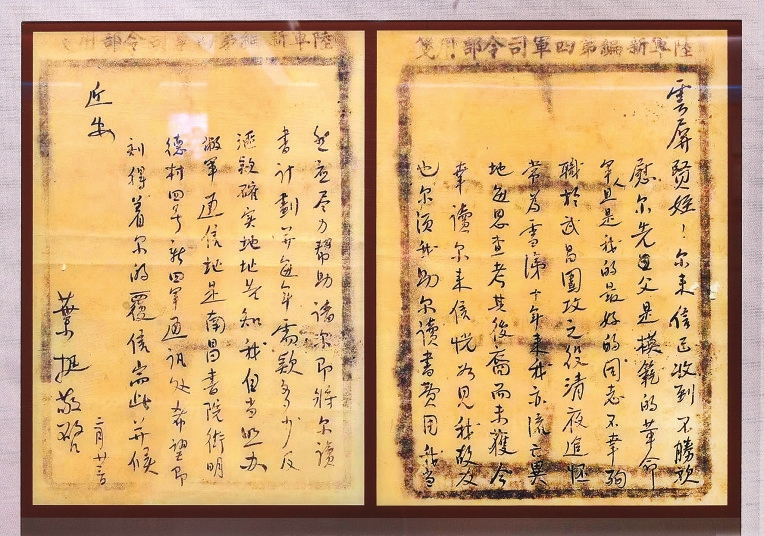 陸軍新編第四軍司令部用箋
雲屏賢姪！尔来信已收到不勝欣
慰尔先父是模範的革命
軍人且是我的最好的同志不幸殉
職於武昌圍攻之役清夜追懷
常為涕十年来我亦流亡異
地每思查考其後裔而未獲今
幸讀尔来信恍如見我故友
也尔須我助尔讀書費用我當
陸軍新編第四軍司令部用箋
然应尽力幫助請尔即將尔讀
書計劃并每年需款多少及
滙款確实地址告知我自当照办
敝軍通信址是南昌書院街明
德村四号新四軍通訊处希望即
刻得着尔的覆信耑此并候
近安
葉挺敬啟
二月廿三日